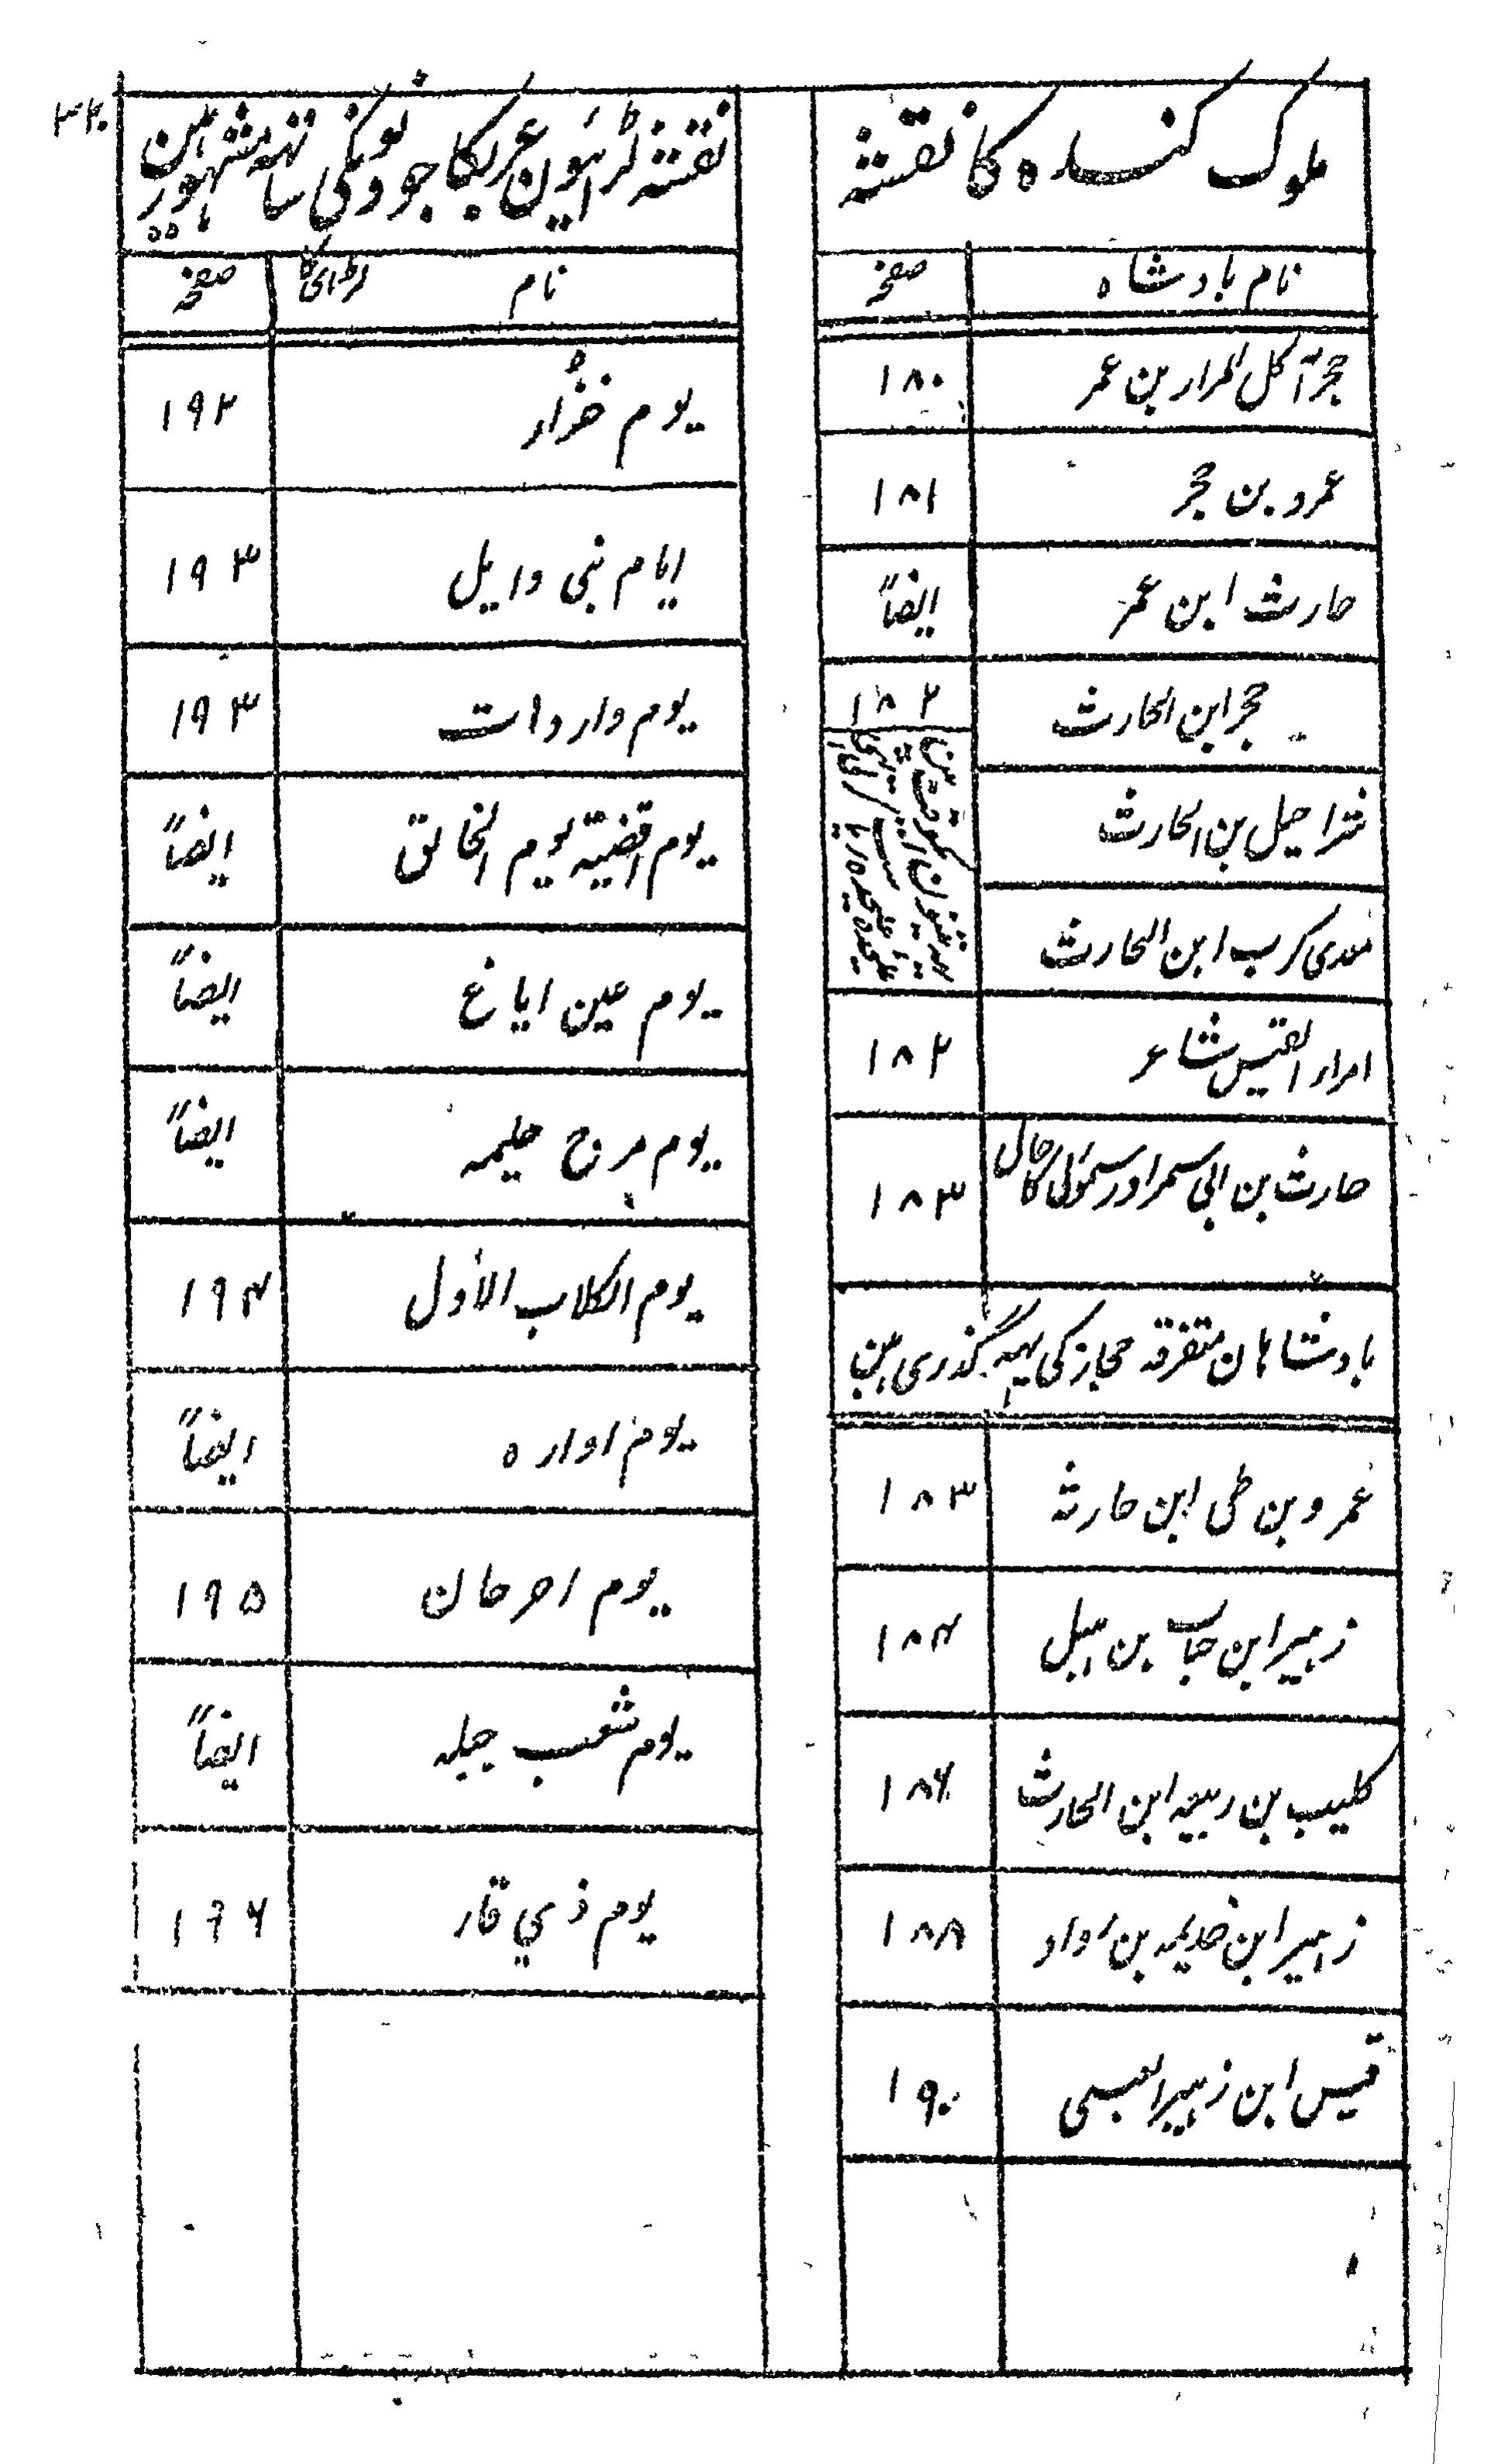 ۳۲۰
ملوک کنده کا نقشہ
نام بادشاہ صفحہ
حجر آکل المرار بن عمر ۱۸۰
عمرو بن حجر ۱۸۱
حارث ابن عمر ایضاً
حجر ابن الحارث ۱۸۲
شراحیل بن الحارث
معدی کرب ابن الحارث
امراء القیس شاعر ۱۸۲
حارث بن ابی سمر اور سموئل کا حال ۱۸۳
بادشاہان متفرقہ حجاز کی یہہ گذری ہین
عمرو بن طی ابن حارثہ ۱۸۳
زہیر ابن جناب بن ہبل ۱۸۴
کلیب بن ربیعہ ابن الحارث ۱۸۶
زہیر ابن خدیمہ بن رواد ۱۸۸
قیس ابن زہیر العبسی ۱۹۰
نقشہ لڑائیون عرب کا جو دونکی ساتھہ مشہور ہین
نام لڑائی کا صفحہ
یوم خزار ۱۹۲
ایام بنی وایل ۱۹۳
یوم واردات ۱۹۳
یوم اقضیۃ یوم الخالق ایضاً
یوم عین اباغ ایضاً
یوم مرج حلیمہ ایضاً
یوم الکلاب الاول ۱۹۴
یوم اوارہ ایضاً
یوم احرحان ۱۹۵
یوم شعب جبلہ ایضاً
یوم ذي قار ۱۹۶